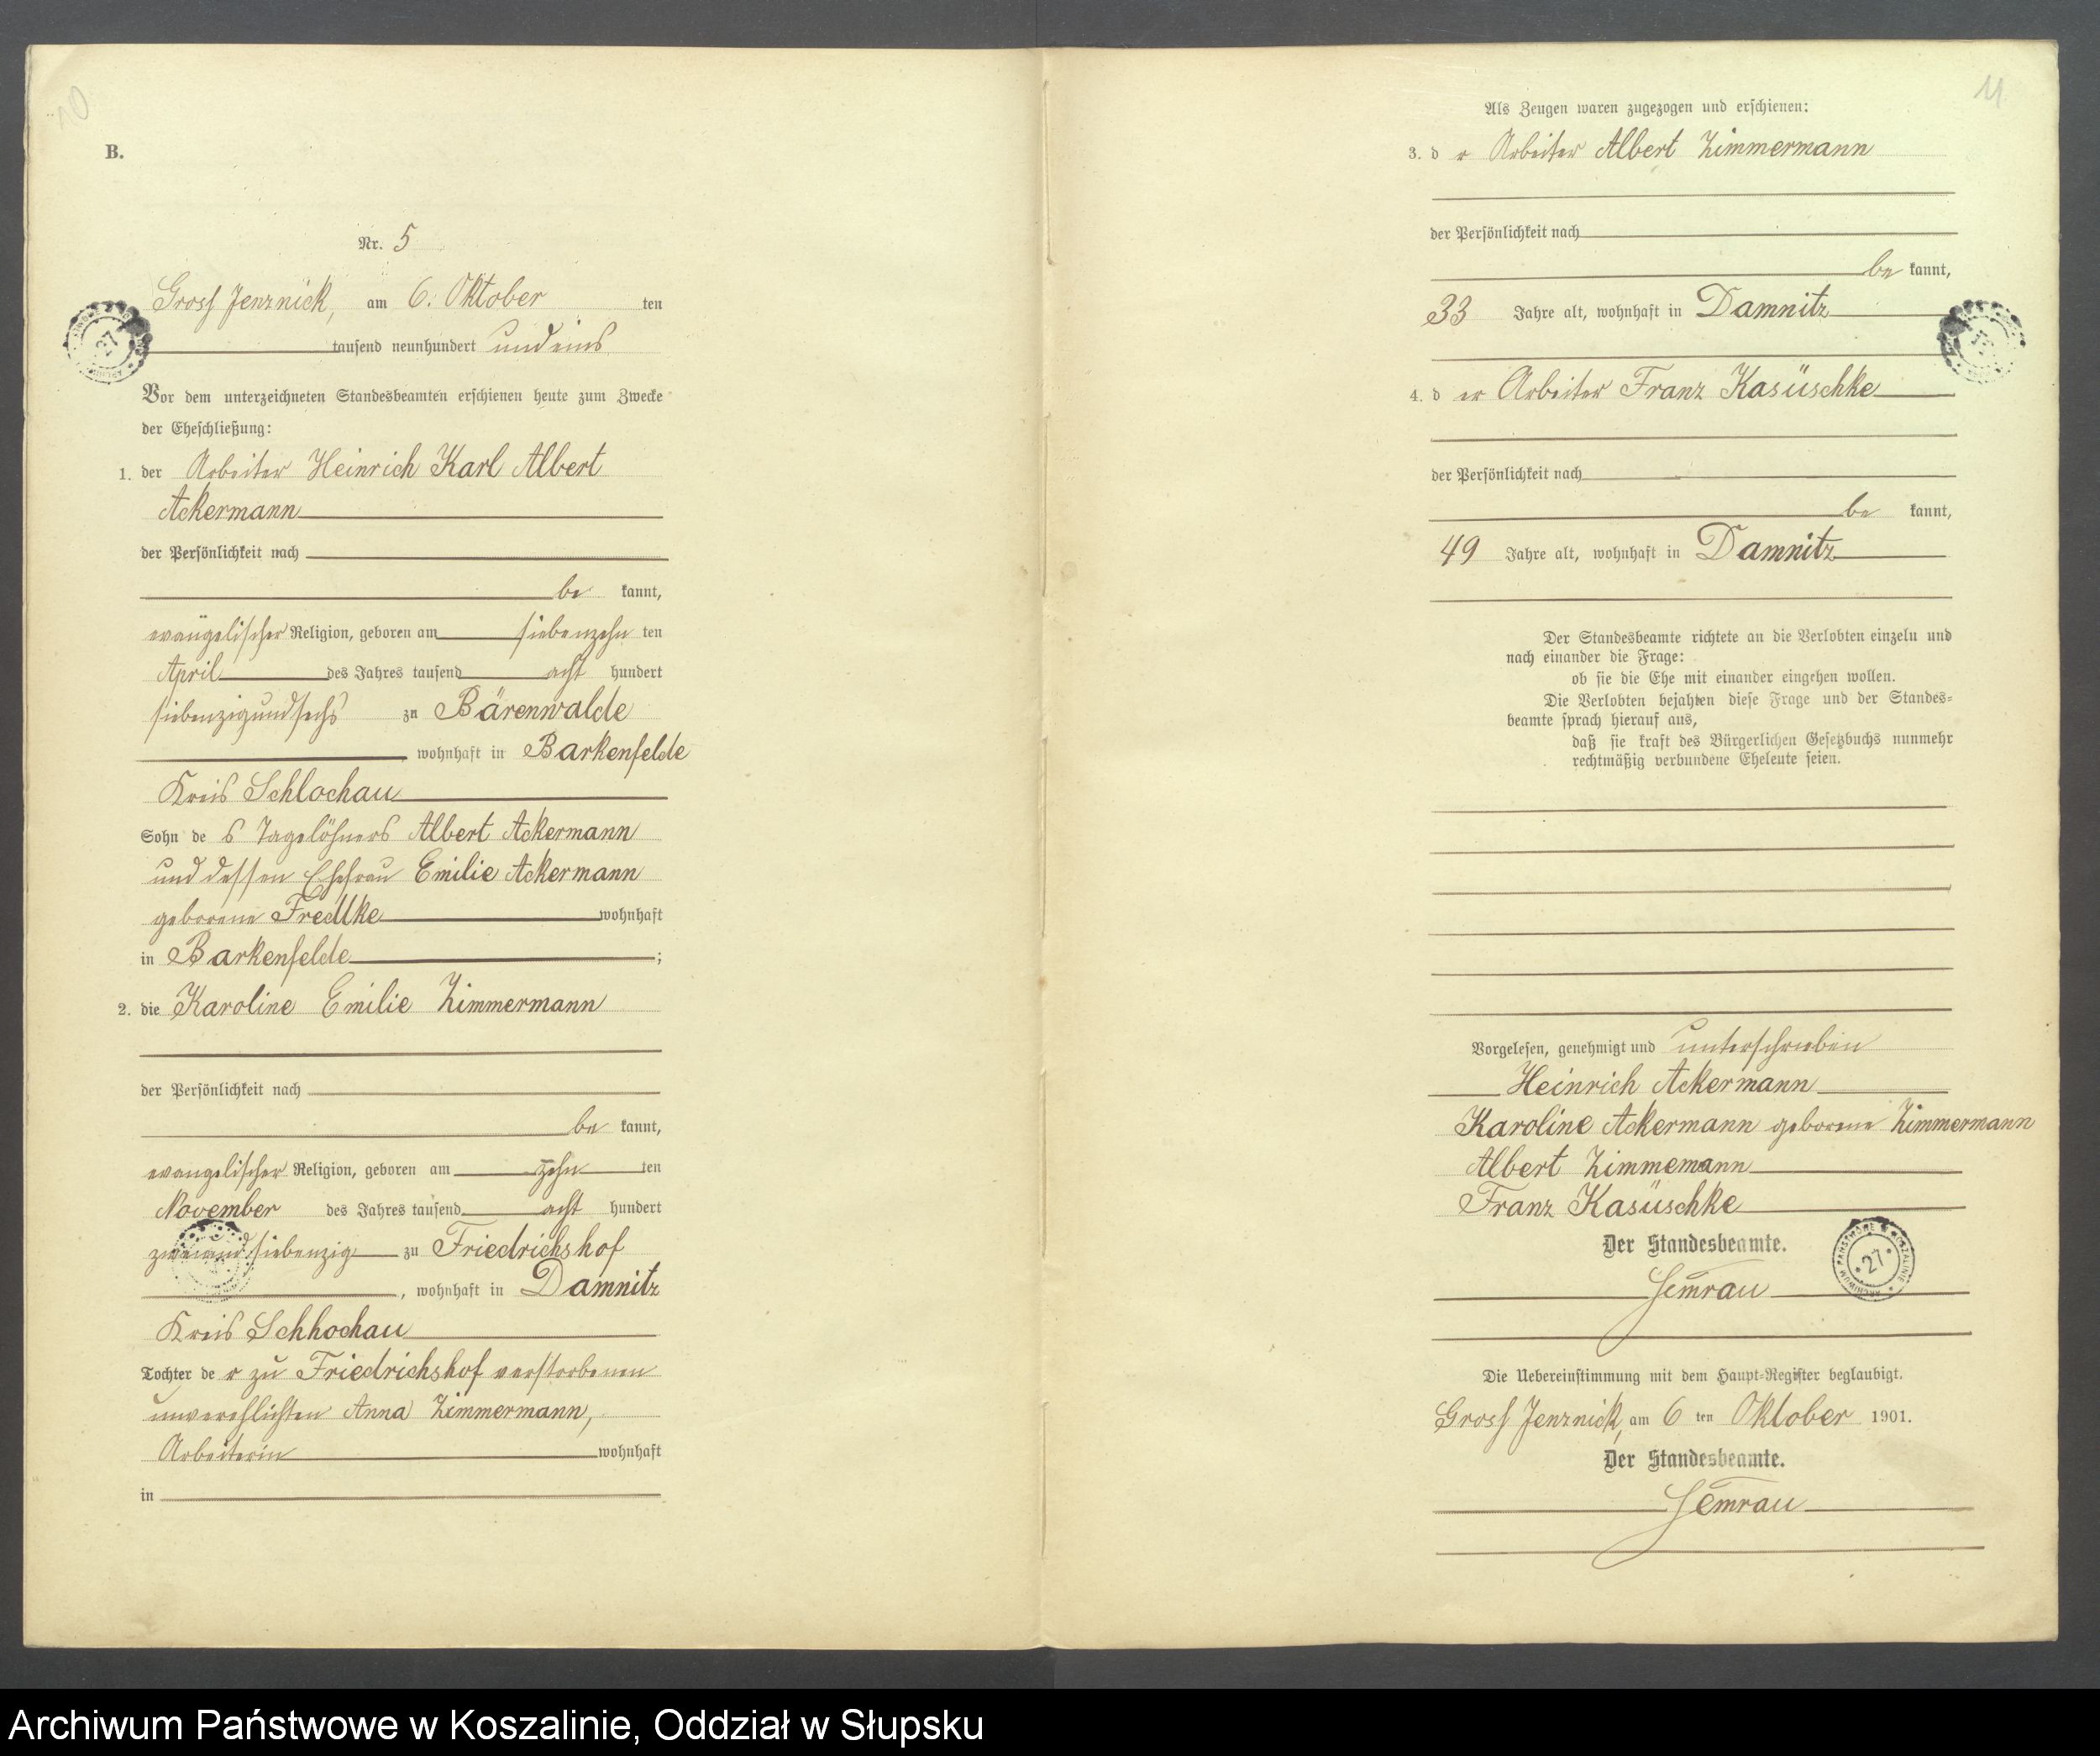 10
B.
Nr. 5
Gross Jenznick, am 6. Oktober ten
tausend neunhundert und eins
Vor dem unterzeichneten Standesbeamten erschienen heute zum Zwecke
der Eheschließung:
1. der Arbeiter Heinrich Karl Albert
Ackermann
der Persönlichkeit nach
be kannt,
evangelischer Religion, geboren am siebenzehn ten
April des Jahres tausend acht hundert
siebenzigundsechs zu Bärenwalde
wohnhaft in Barkenfelde
Kreis Schlochau
Sohn de s Tagelöhners Albert Ackermann
und dessen Ehefrau Emilie Ackermann
geborene Fredtke wohnhaft
in Barkenfelde ;
2. die Karoline Emilie Zimmermann
der Persönlichkeit nach
be kannt,
evangelischer Religion, geboren am zehn ten
November des Jahres tausend acht hundert
zweiundsiebenzig zu Friedrichshof
, wohnhaft in Damnitz
Kreis Schhochau
Tochter de r zu Friedrichshof verstorbenen
unverehlichten Anna Zimmermann,
Arbeiterin wohnhaft
in
11
Als Zeugen waren zugezogen und erschienen:
3. d r Arbeiter Albert Zimmermann
der Persönlichkeit nach
be kannt,
33 Jahre alt, wohnhaft in Damnitz
4. d er Arbeiter Franz Kasüschke
der Persönlichkeit nach
be kannt,
49 Jahre alt, wohnhaft in Damnitz
Der Standesbeamte richtete an die Verlobten einzeln und
nach einander die Frage:
ob sie die Ehe mit einander eingehen wollen.
Die Verlobten bejahten diese Frage und der Standes=
beamte sprach hierauf aus,
daß sie kraft des Bürgerlichen Gesetzbuchs nunmehr
rechtmäßig verbundene Eheleute seien.
Vorgelesen, genehmigt und unterschrieben
Heinrich Ackermann
Karoline Ackermann geborene Zimmermann
Albert Zimmemann
Franz Kasüschke
Der Standesbeamte.
Semrau
ARCHIWUM PAŃSTWOWE W KOSZALINIE * 27 *
Die Uebereinstimmung mit dem Haupt=Register beglaubigt.
Gross Jenznick, am 6 ten Oktober 1901.
Der Standesbeamte.
Semrau
Archiwum Państwowe w Koszalinie, Oddział w Słupsku